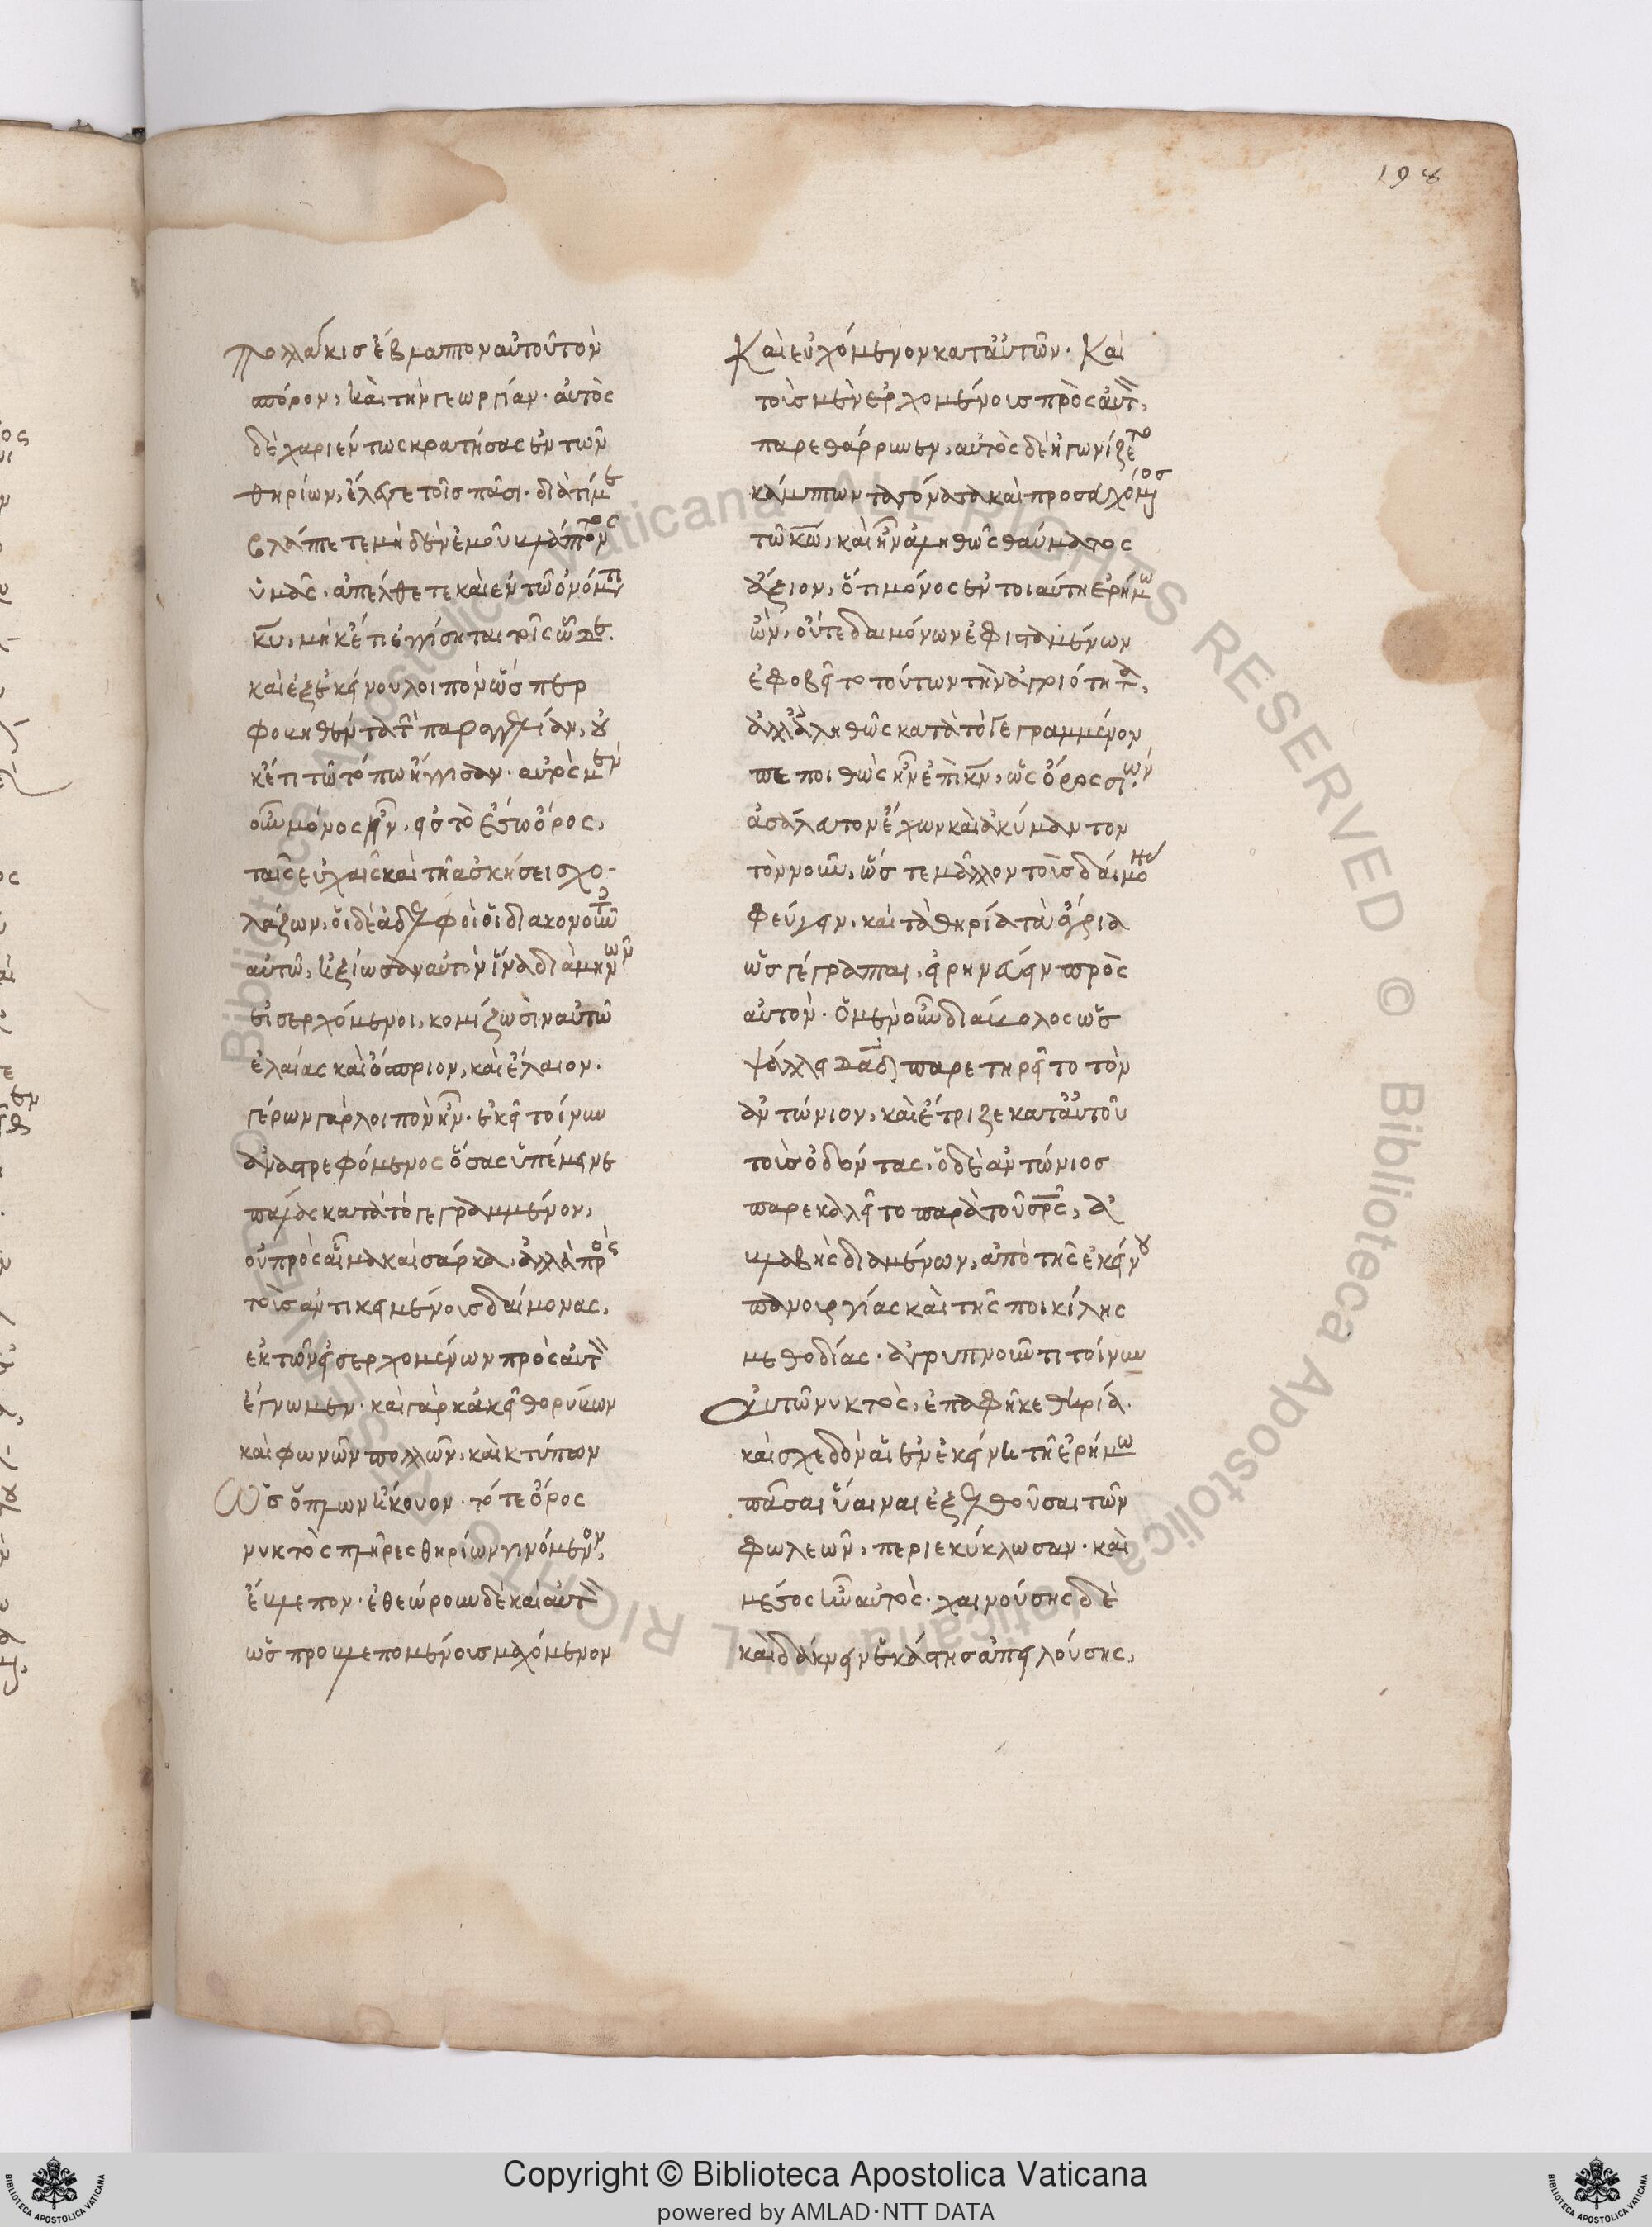 198
πολλάκις ἔβλαπτον αὐτοῦ τὸν
σπόρον, καὶ τὴν γεωργίαν· αὐτὸς
δὲ χαριέντως κρατήσας ἓν τῶν
θηρίων, ἔλεγε τοῖς πᾶσι· διὰ τί με
βλάπτετε μηδὲν ἐμοῦ βλάπτοντος
ὑμᾶς· ἀπέλθετε καὶ ἐν τῶ ὀνόματι
κυ, μηκέτι ἐγγίσηται τοῖς ὧδε.
καὶ ἐξ ἐκείνου λοιπὸν ὥσπερ
φοβηθέντα τ παραγγελίαν, ου
κέτι τῶ τόπω ἤγγισαν· αὐτὸς μὲν
οὖν μόνος ἦν εἰς τὸ ἔσω ὄρος,
ταῖς εὐχαῖς καὶ τῆ ἀσκήσει σχο-
λάζων, οἱ δὲ ἀδελφοὶ οἱ διακονοῦντες
αὐτῶ, ἠξίωσαν αὐτὸν ἵνα διὰ μηνῶν
εἰσερχόμενοι, κομίζωσιν αὐτῶ
ἐλαίας καὶ ὄσπριον, καὶ ἔλαιον.
γέρων γὰρ λοιπὸν ἦν· ἐκεῖ τοίνυν
ἀναστρεφόμενος ὅσας ὑπέμεινε
πάλας κατὰ τὸ γεγραμμένον,
οὐ πρὸς αἷμα καὶ σάρκα, ἀλλὰ πρὸς
τοὺς ἀντικειμένους δαίμονας,
ἐκ τῶν εἰσερχομένων πρὸς αὐτ
ἔγνωμεν· καὶ γὰρ κἀκεῖ θορύβων
καὶ φωνῶν πολλῶν, καὶ κτύπων
ὡς ὅπλων ἤκουον· τό τε ὄρος
νυκτὸς πλῆρες θηρίων γινόμενον,
ἔβλεπον· ἐθεώρουν δὲ καὶ αὐτ
ὡς πρὸ βλεπομένοις μαχόμενον
Καὶ εὐχόμενον κατ αὐτῶν· Καὶ
τοῖς μὲν ἐρχομένοις πρὸς αὐτ,
παρεθάρρυνεν, αὐτὸς δὲ ἠγωνίζετο
κάμπτων τὰ γόνατα καὶ προσευχόμενος
τῶ κω, καὶ ἦν ἀληθῶς θαύματος
ἄξιον, ὅτι μόνος ἐν τοιαύτη ἐρήμω
ὢν, οὔτε δαιμόνων ἐφισταμένων
ἐφοβεῖτο τούτων τὴν ἀγριότητα,
ἀλλ ἀληθῶς κατὰ τὸ γεγραμμένον
πεποιθὼς ἦν ἐπὶ κν, ὡς ὄρος σιών
ἀσάλευτον ἔχων καὶ ἀκύμαντον
τὸν νοῦν, ὥστε μᾶλλον τοὺς δαίμο
φεύγειν, καὶ τὰ θηρία τὰ ἄγρια
ὡς γέγραπται, εἰρηνεύειν πρὸς
αὐτόν· ὁ μὲν οὖν διάβολος ὡς
ψάλλει δαδ, παρετηρεῖτο τὸν
ἀντώνιον, καὶ ἔτριζε κατ αὐτοῦ
τοὺς ὀδόντας, ὁ δὲ ἀντώνιος
παρεκαλεῖτο παρὰ τοῦ σρς, ἀ
βλαβὴς διαμένων, ἀπὸ τῆς ἐκείνου
πανουργίας καὶ τῆς ποικίλης
μεθοδίας· ἀγρυπνοῦντι τοίνυν
αὐτῶ νυκτὸς, ἐπαφῆκε θηρία.
καὶ σχεδὸν αἱ ἐν ἐκείνη τῆ ἐρήμω
πᾶσαι ὕαιναι ἐξελθοῦσαι τῶν
φωλεῶν, περιεκύκλωσαν· καὶ
μέσος ἦν αὐτὸς· χαινούσης δὲ
καὶ δάκνειν ἑκάστης ἀπειλούσης,
Copyright © Biblioteca Apostolica Vaticana
powered by AMLAD·NTT DATA